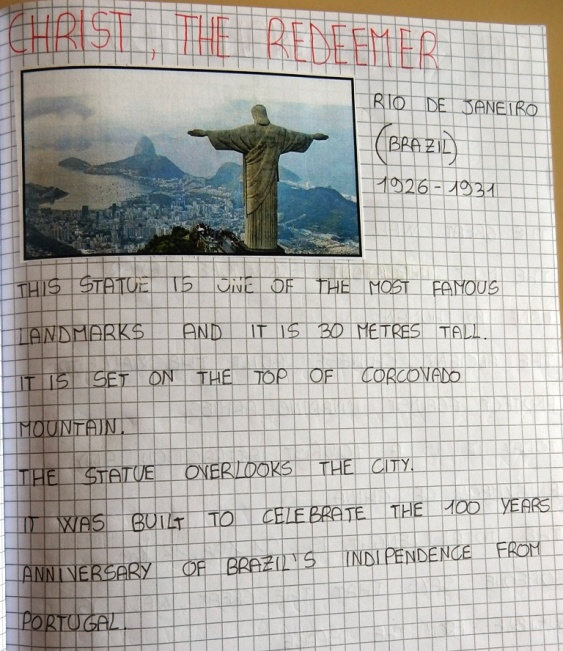 CHRIST, THE REDEEMER
RIO DE JANEIRO
(BRAZIL)
1926-1931
THIS STATUE IS ONE OF THE MOST FAMOUS
LANDMARKS AND IT IS 30 METRES TALL.
IT IS SET ON THE TOP OF CORCOVADO
MOUNTAIN.
THE STATUE OVERLOOKS THE CITY.
IT WAS BUILT TO CELEBRATE THE 100 YEARS
ANNIVERSARY OF BRAZIL'S INDIPENDENCE FROM
PORTUGAL.